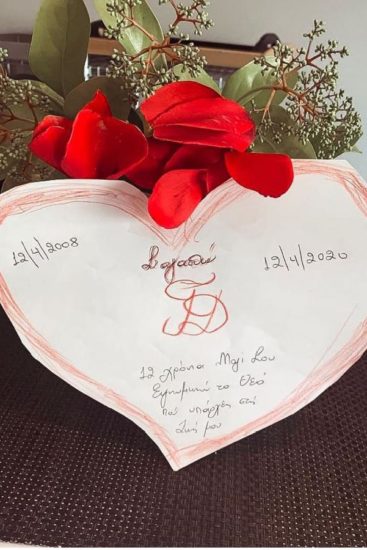 12/4/2008 Σ'αγαπώ 12/4/2020
12 χρόνια Μαζί Σου
το Θεό
που υπάρχεις στη
Ζωή μου